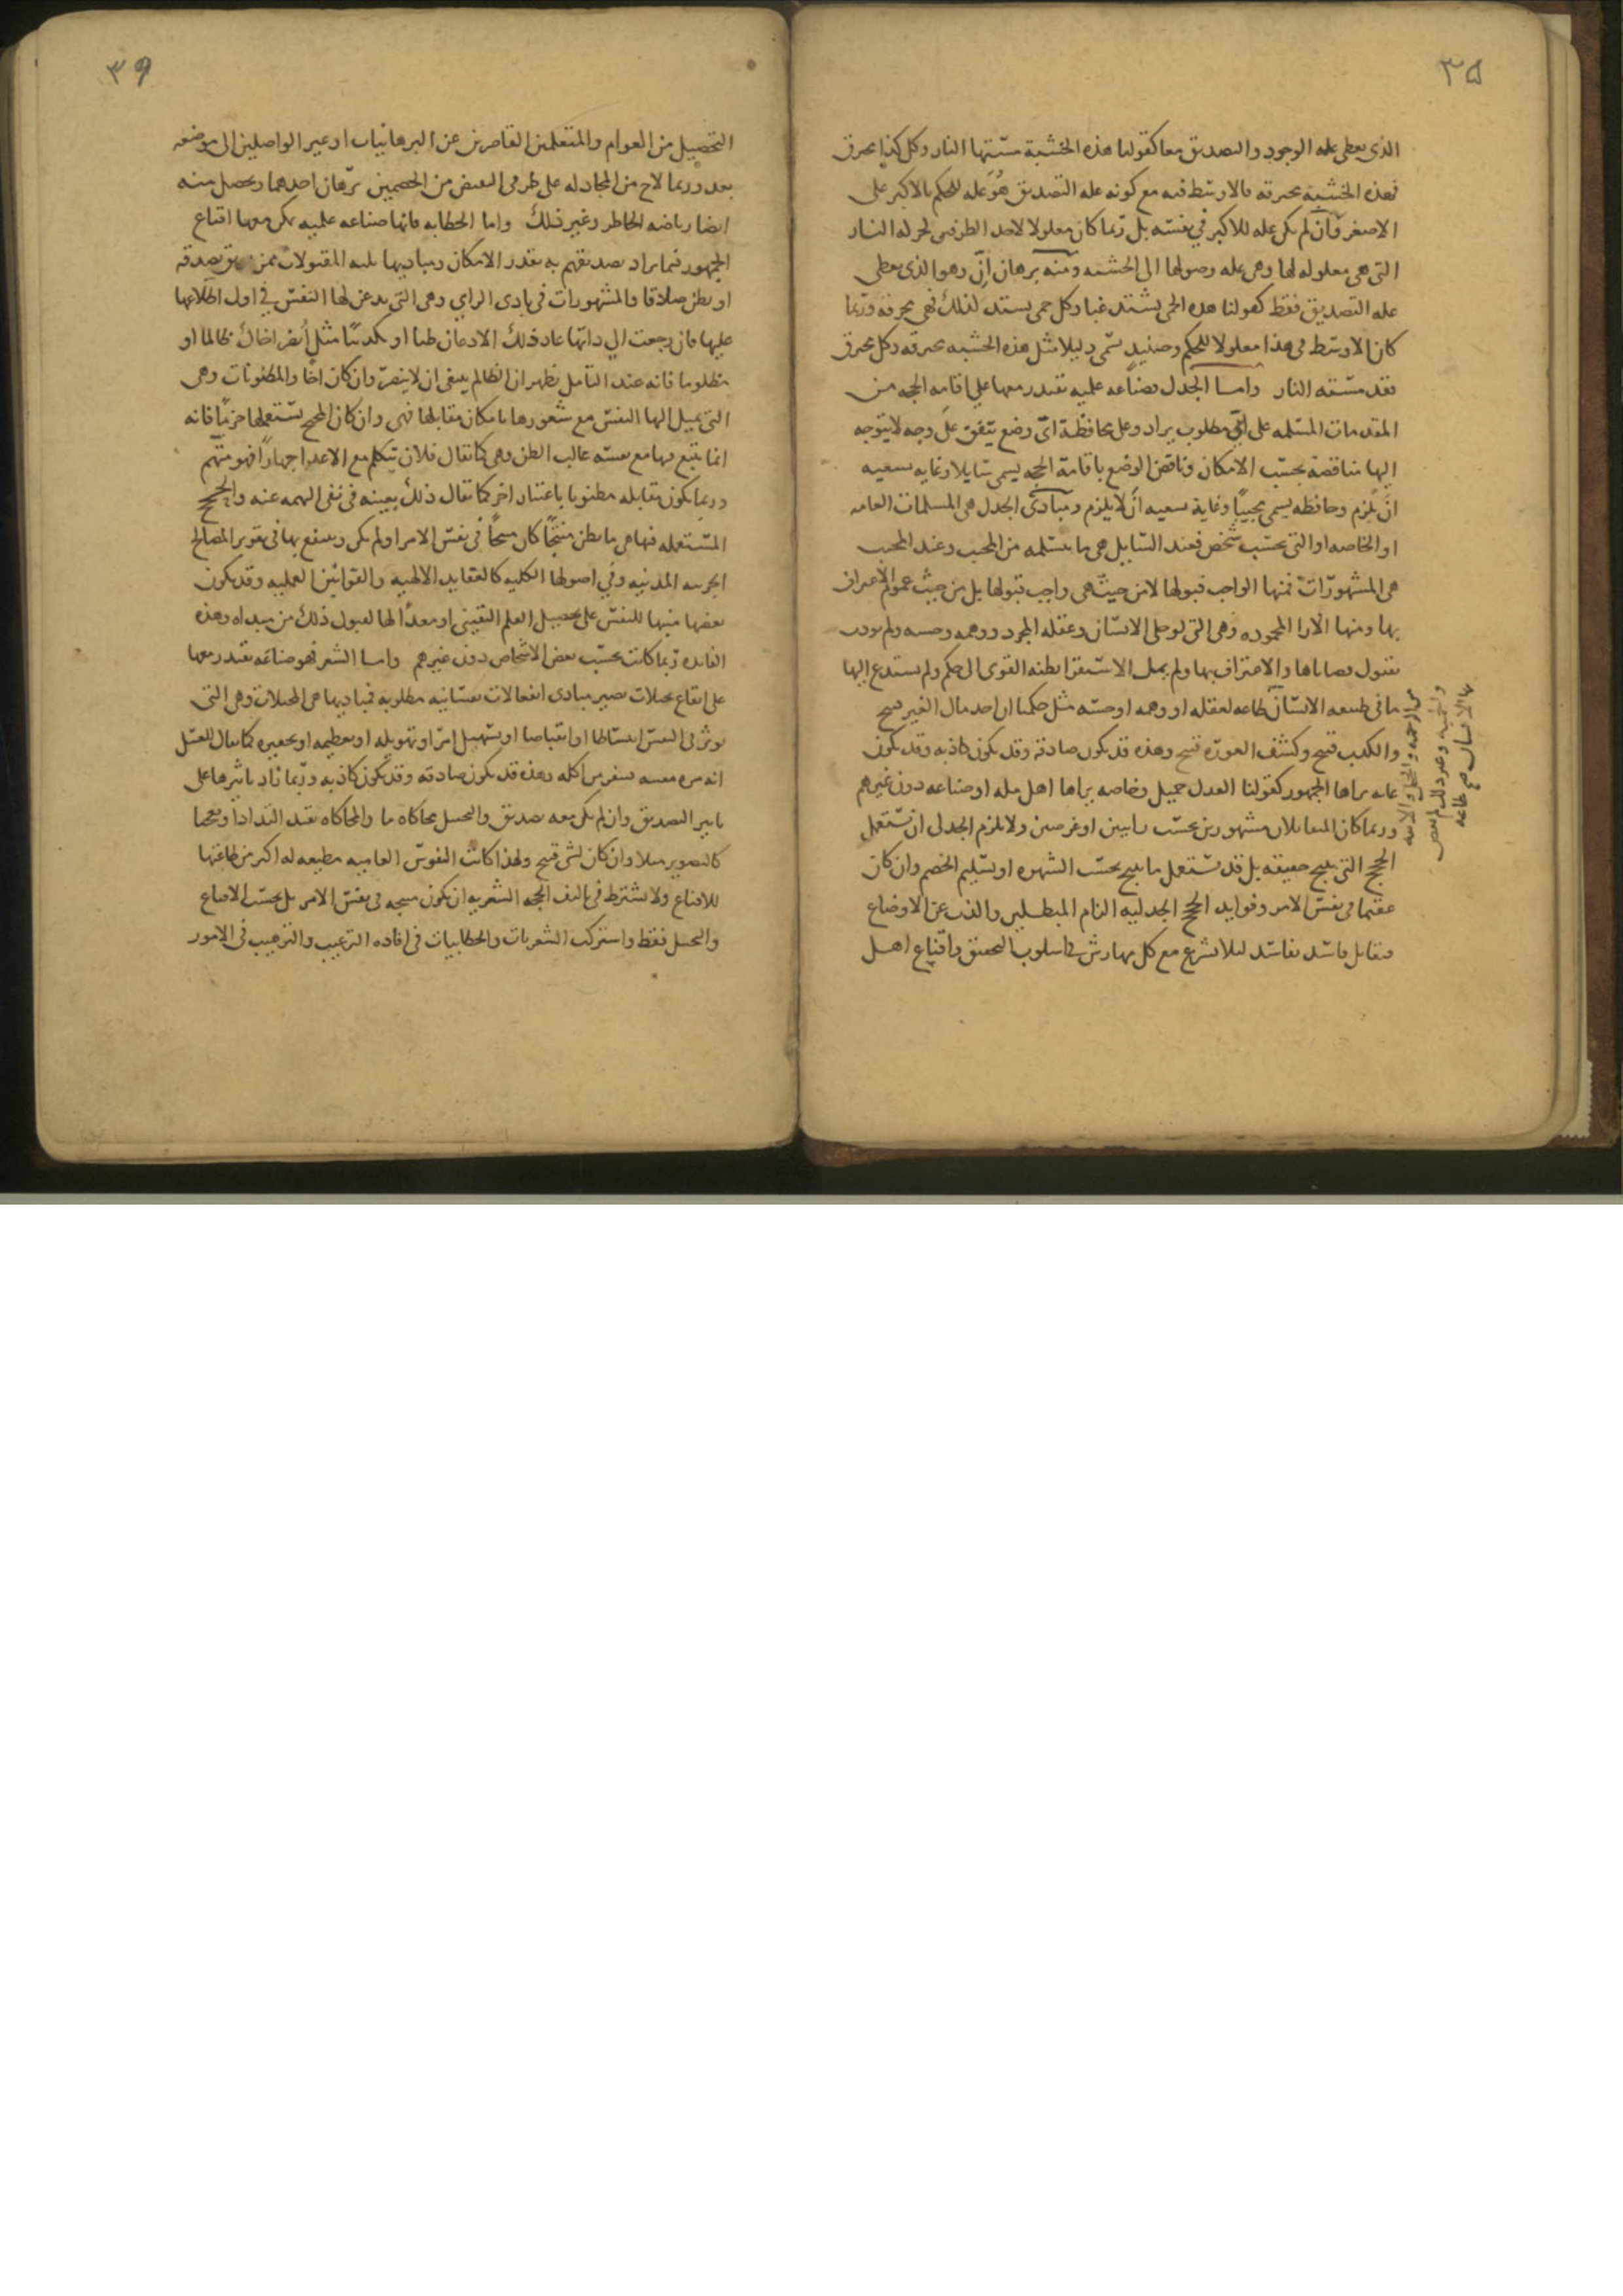 ٣٥
الذى يعطى علة الوجود والتصديق معا كقولنا هذه الخشبة مستها النار وكل كذا يحرق
فهذه الخشبه محترقه فالاوسط فيه مع كونه عله التصديق هو عله للحكم بالاكبر على
الاصغر وان لم يكن عله للاكبر في نفسه بل ربما كان معلولا لاحد الطرفين لحركه النار
التى هى معلوله لها وهى عله وصولها الى الخشبه ومنه برهان انّ وهو الذى يعطى
عله التصديق فقط كقولنا هذه الحمى يشتد غبا وكل حمى يشتد كذلك فهى محرقه وربما
كان الاوسط في هذا معلولا للحكم وحينيد يسمى دليلا مثل هذه الخشبه محترقه وكل محترق
فقد مسته النار واما الجدل فصناعه علميه يقتدر معها على اقامه الحجه من
المقدمات المسلمه على اىّ مطلوب يراد وعلى محافظة اىّ وضع يتفق على وجه لا يتوجه
اليها مناقضة بحسب الامكان وناقض الوضع باقامة الحجه يسمى سايلا وغايه سعيه
ان يُلزم وحافظه يسمى مجيبًا وغاية سعيه ان لا يلزم ومبادى الجدل هى المسلمات العامه
او الخاصه او التى بحسب شخص فعند السايل هى ما يتسلمه من المجيب وعند المجيب
هى المشهورات فمنها الواجب قبولها لا من حيث هى واجب قبولها بل من حيث عموم الاعتراف
بها ومنها الارا المحموده وهى التى لو خلى الانسان وعقله المجرد ووهمه وحسه ولم يودب
بقبول قضاياها والاعتراف بها ولم يمل الاستقرا بظنه القوى الى حكم ولم يستدع اليها
ما في طبيعه الانسان طاعه لعقله او وهمه او حسه مثل حكمنا ان اخذ مال الغير قبيح
والكذب قبيح وكشف العورة قبيح وهذه قد يكون صادقه وقد يكون كاذبه وقد يكون
عامه يراها الجمهور كقولنا العدل جميل وخاصه يراها اهل مله او صناعه دون غيرهم
وربما كان المتقابلان مشهورين بحسب رايين او غرضين ولا يلزم الجدل ان يستعمل
الحجج التى ينتج حقيقه بل قد يستعمل ما ينتج بحسب الشهره او تسليم الخصم وان كان
عقيما في نفس الامر وفوايد الحجج الجدليه الزام المبطلين والذب عن الاوضاع
ومقابل فاسد بفاسد ليلا يشرع مع كل مهارش في اسلوب التحقيق واقناع اهل
من الرحمه والخجل والانفه
والحميه وغير ذلك
الانسان طاعه
٣٩
التحصيل من العوام والمتعلمين القاصرين عن البرهانيات او غير الواصلين الى موضعه
بعد وربما لاح من المجادله على طرفى النقيض من الخصمين برهان احدهما ويحصل منه
ايضا رياضه الخاطر وغير ذلك واما الخطابه فانها صناعه علميه يمكن معها اقناع
الجمهور فيما يراد تصديقهم به بقدر الامكان ومباديها ثلثه المقبولات ممن يوثق بصدقه
او يظن صادقا والمشهورات في بادى الراى وهى التى يذعن لها النفس في اول اطلاعها
عليها فان رجعت الى ذاتها عاد ذلك الاذعان ظنا او تكذيبًا مثل اُنصر اخاك ظالما او
مظلوما فانه عند التامل يظهر ان الظالم ينبغى ان لا ينصر وان كان اخًا والمظنونات وهى
التى يميل اليها النفس مع شعورها بامكان مقابلها فهى وان كان المحتج يستعملها جزمًا فانه
انما يتبع فيها مع نفسه غالب الظن وهى كما يقال فلان يتكلم مع الاعدا جهارًا فهو متهم
وربما يكون مقابله مظنونا باعتبار اخر كما يقال ذلك بعينه في نفى التهمه عنه والحجج
المستعمله فيها هى ما يظن منتجًا كان منتجًا في نفس الامر او لم يكن وينتفع بها في تقوير المصالح
الجزييه المدنيه وفي اصولها الكليه كالعقايد الالهيه والقوانين العمليه وقد يكون
بعضها منبها للنفس على تحصيل العلم اليقينى او معدًا لها لقبول ذلك من مبداه وهذه
الفايده ربما كانت بحسب بعض الاشخاص دون غيرهم واما الشعر فهو صناعه يقتدر معها
على ايقاع تخيلات تصير مبادى انفعالات نفسانيه مطلوبه فمباديها هى المخيلات وهى التى
توثر في النفس انبساطا او انقباضا او تسهيل امر او تهويله او تعظيمه او تحقيره كما يقال للعسل
انه مره مقييه فينفر من اكله وهذه قد يكون صادقه وقد يكون كاذبه وربما زاد تاثيرها على
تاثير التصديق وان لم يكن معه تصديق والتخييل محاكاة ما والمحاكاه تفيد التذاذا وتعجبا
كالتصوير مثلا وان كان لشى قبيح ولهذا كانت النفوس العاميه مطيعه له اكثر من طاعتها
للاقناع ولا يشترط في تاليف الحجه الشعريه ان يكون منتجه في نفس الامر بل بحسب الاقناع
والتخييل فقط واشتركت الشعريات والخطابيات في افاده الترغيب والترهيب في الامور